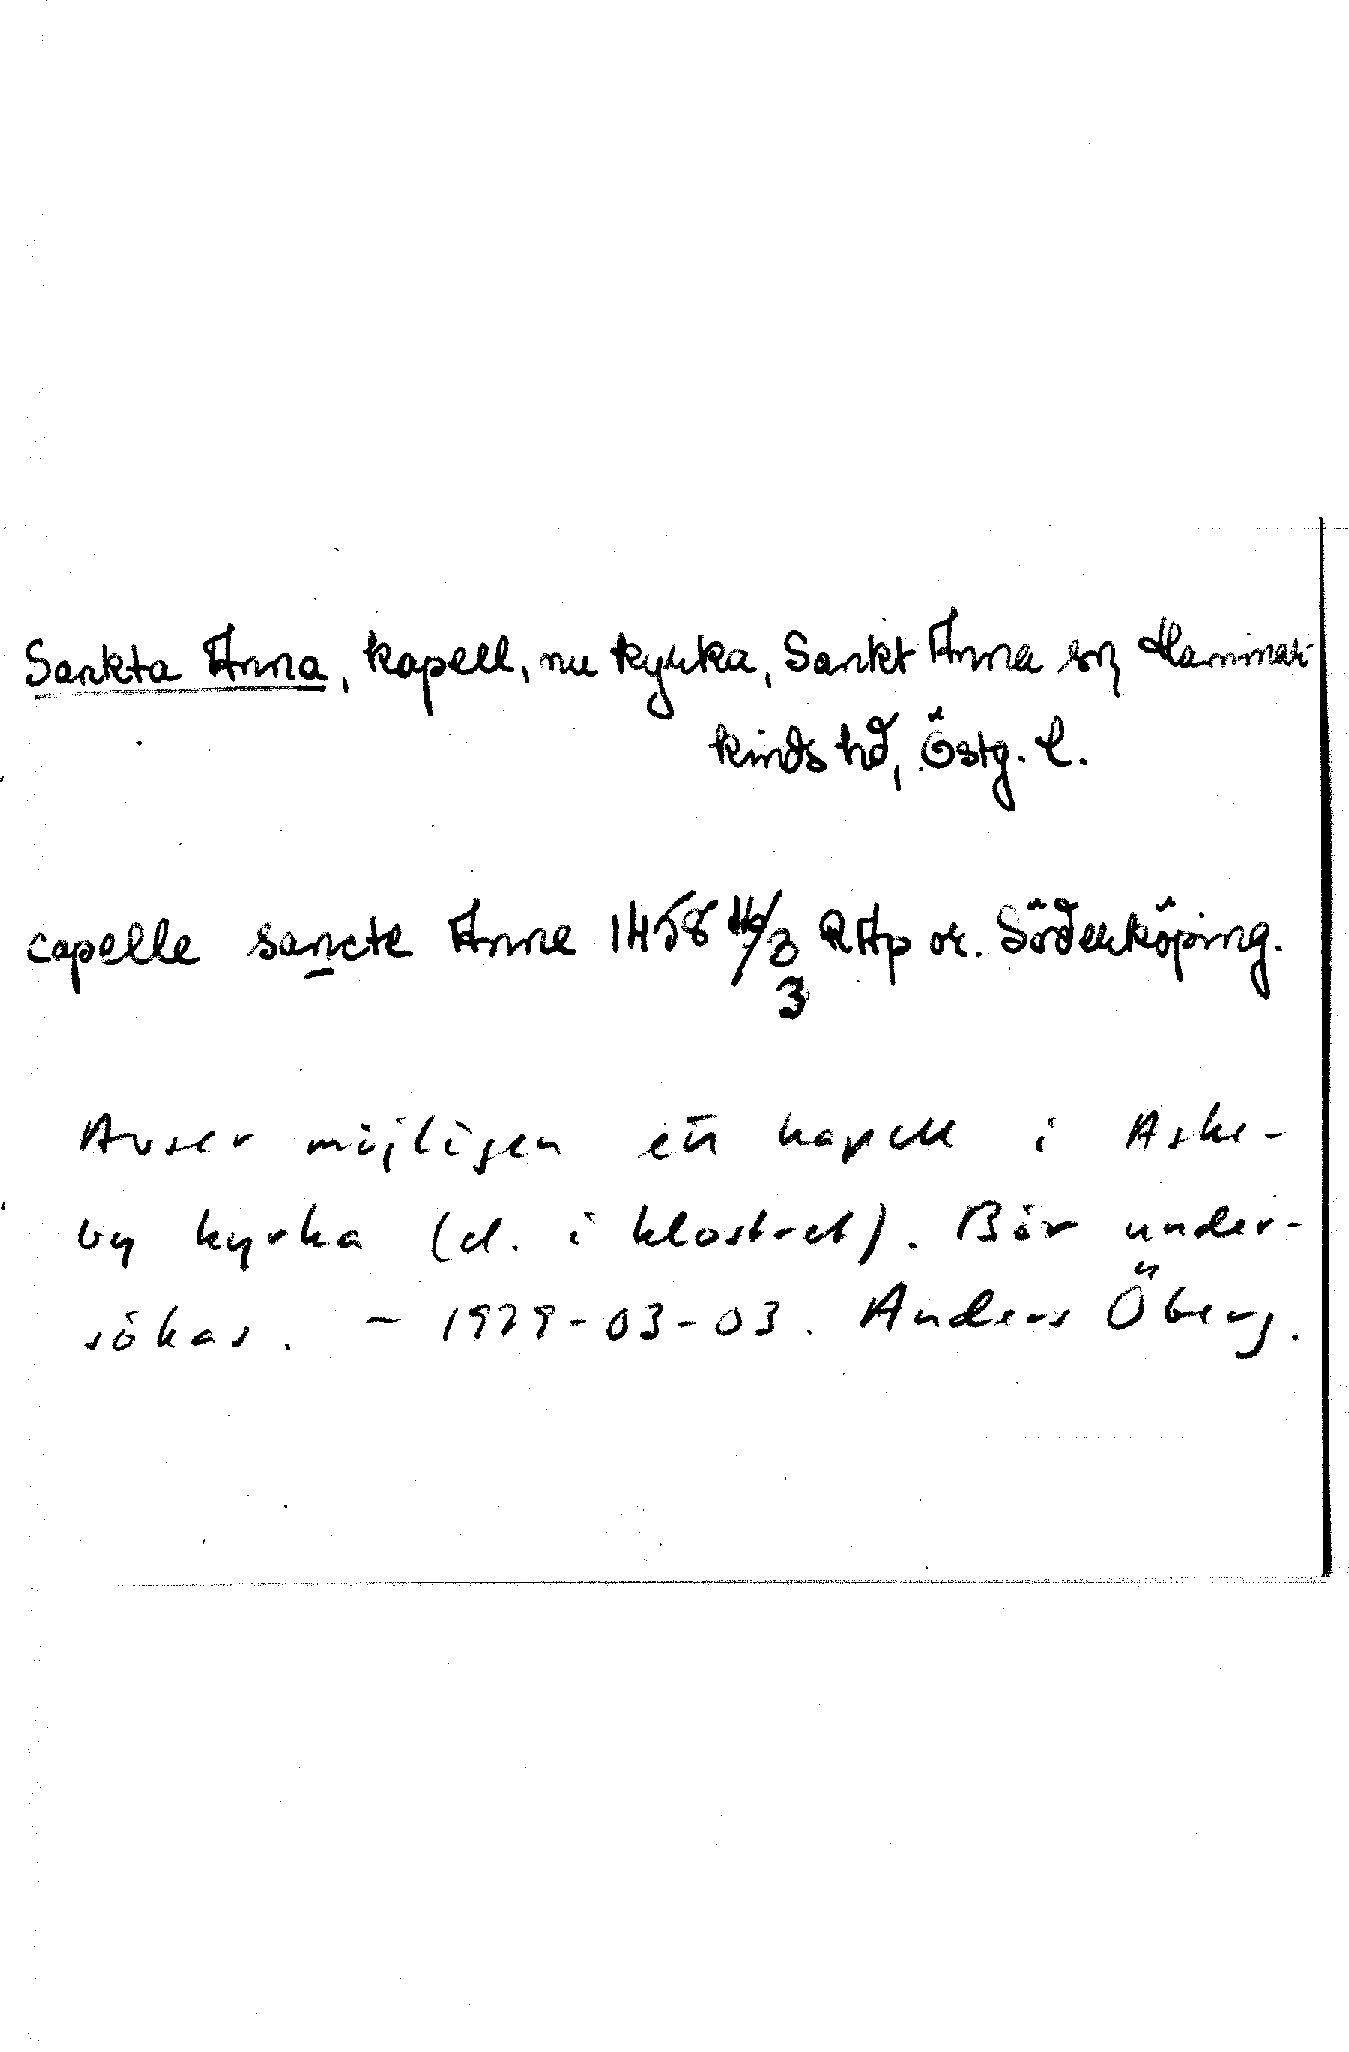 Sankta Anna, kapell, nu kyrka, Sankt Anna sn, Hammar-
kinds hd, Östg. L.
capelle sancte Anne 1458 16/3 RAp or. Söderköping.
3
Avser möjligen ett kapell i Aske-
by kyrka (el. i klostret). Bör under-
sökas. – 1979-03-03. Anders Öberg.